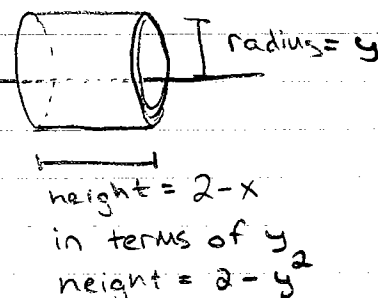 radius = y
height = 2-x
in terms of y
height = 2-y²